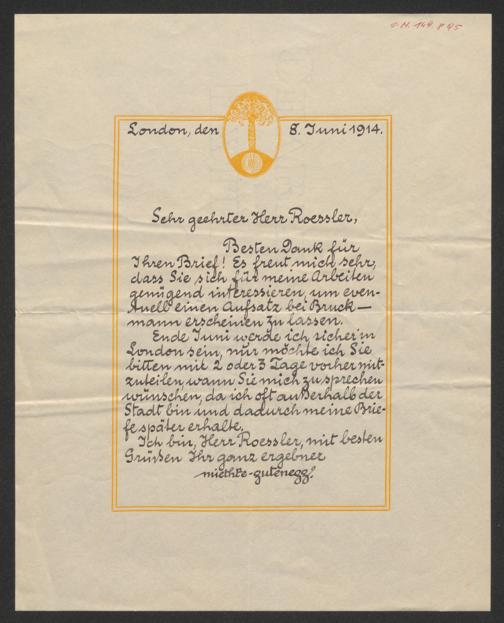 London, den 8. Juni 1914.
Sehr geehrter Herr Roessler,
Besten Dank für
Ihren Brief! Es freut mich sehr,
dass Sie sich für meine Arbeiten
genügend interessieren, um even-
tuell einen Aufsatz bei Bruck-
mann erscheinen zu lassen.
Ende Juni werde ich sicher in
London sein, nur möchte ich Sie
bitten mir 2 oder 3 Tage vorher mit-
zuteilen wann Sie mich zu sprechen
wünschen, da ich oft außerhalb der
Stadt bin und dadurch meine Brie-
fe später erhalte.
Ich bin, Herr Roessler, mit besten
Grüßen Ihr ganz ergebner
miethke-gutenegg!